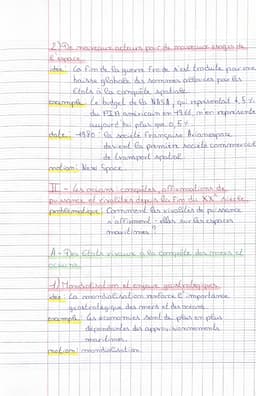 2) De nouveaux acteurs pour de nouveaux usages de
l'espace
idée : La fin de la guerre froide s'est traduite par une
baisse globale des sommes allouées par les
Etats à la conquête spatiale.
exemple : Le budget de la NASA, qui représentait 4,5%
du PIB américain en 1966, n'en représente
aujourd'hui plus que 0,5%.
date : 1980 : la société française Arianespace
devient la première société commerciale
de transport spatial.
notion : New Space
II - Les océans : conquêtes, affirmations de
puissance et rivalités depuis la fin du XXe siècle.
problématique : Comment les rivalités de puissance
s'affirment-elles sur les espaces
maritimes ?
A - Des Etats rivaux à la conquête des mers et
océans.
1) Mondialisation et enjeux géostratégiques
idée : La mondialisation renforce l'importance
géostratégique des mers et des océans.
exemple : les économies sont de plus en plus
dépendantes des approvisionnements
maritimes.
notion : mondialisation